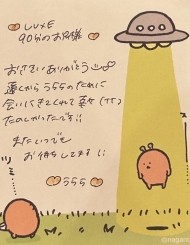 LUXE
90分のお兄様
おさそいありがとう
遠くからうららのために
会いにきてくれて幸せ(TT)
たのしかったです!!
またいつでも
お待ちしてます!!
うらら